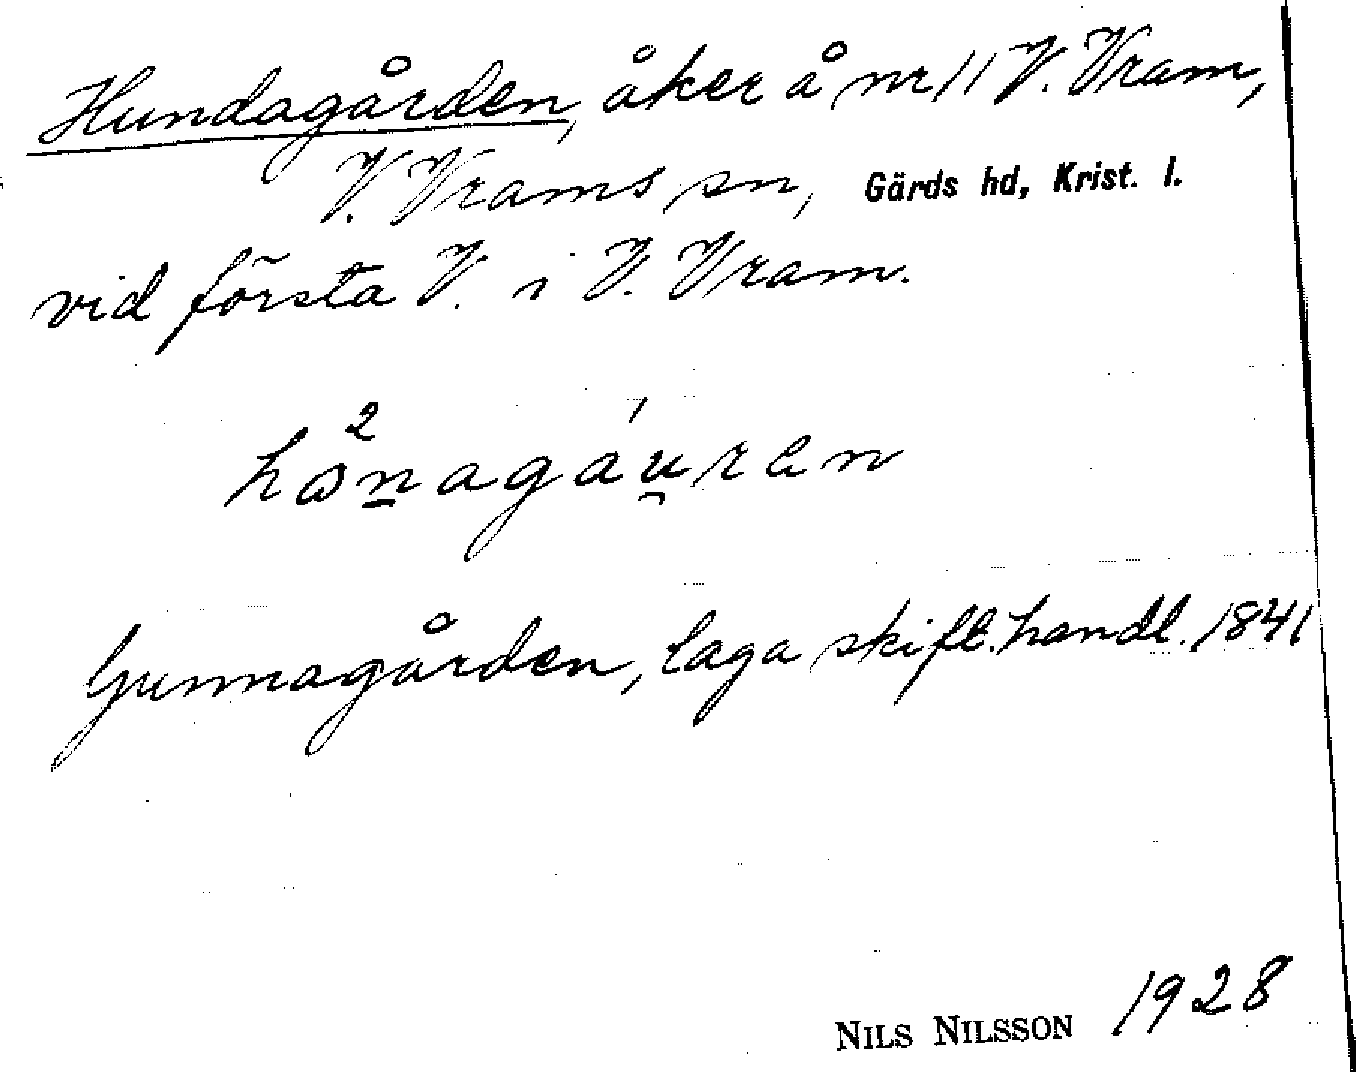 Hundagården, åker å nr 11 V. Vram,
V. Vrams sn, Gärds hd, Krist. l.
vid första V. i V. Vram.
Gunnagården, laga skift. handl. 1841
NILS NILSSON 1928